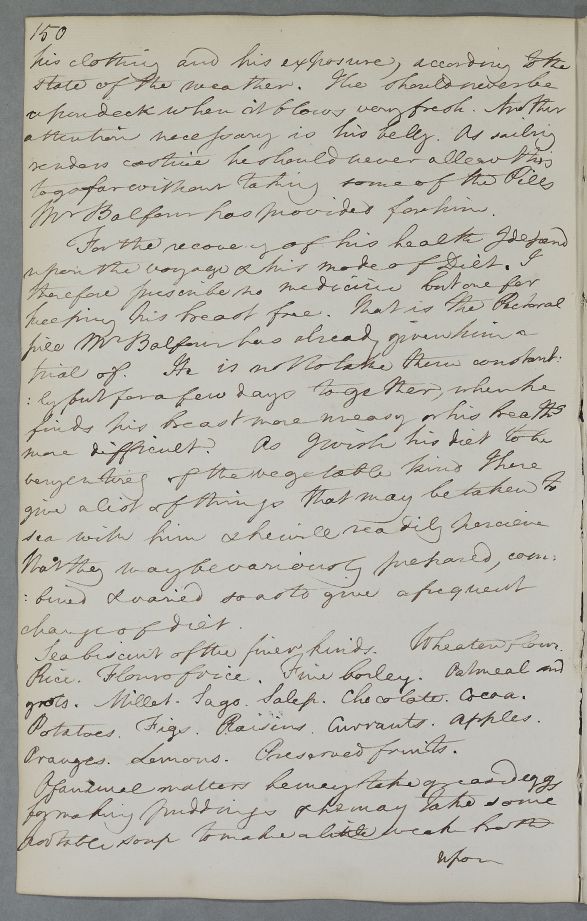 150
his clothing and his exposure, according to the
state of the weather. He should never be
upon deck when it blows very fresh. Another
attention necessary is his belly. As sailing
renders costive he should never allow this
to go far without taking some of the Pills
Mr Balfour has provided for him.
For the recovery of his health I depend
upon the voyage & his mode of Diet. I
therefore prescribe no medicine but one for
keeping his breast free. That is the Pectoral
pill Mr Balfour has already given him a
trial of. He is not to take them constant:
:ly but for a few days together, when he
finds his breast more uneasy or his breath
more difficult. As I wish his diet to be
very entirely of the vegetable kind I here
give a list of things that may be taken to
sea with him & he will readily perceive
that they may be variously prepared, com:
:bined & varied so as to give a frequent
change of diet.
Sea biscuit of the finer kinds. Wheaten flour.
Rice. Flour of rice. Fine barley. Oatmeal and
grots. Millet. Sago. Salep. Chocolate. Cocoa.
Potatoes. Figs. Raisins. Currants. Apples.
Oranges. Lemons. Preserved fruits.
Of animal matters he may take greased eggs
for making puddings & he may take some
portable soup to make a little weak broth
upon